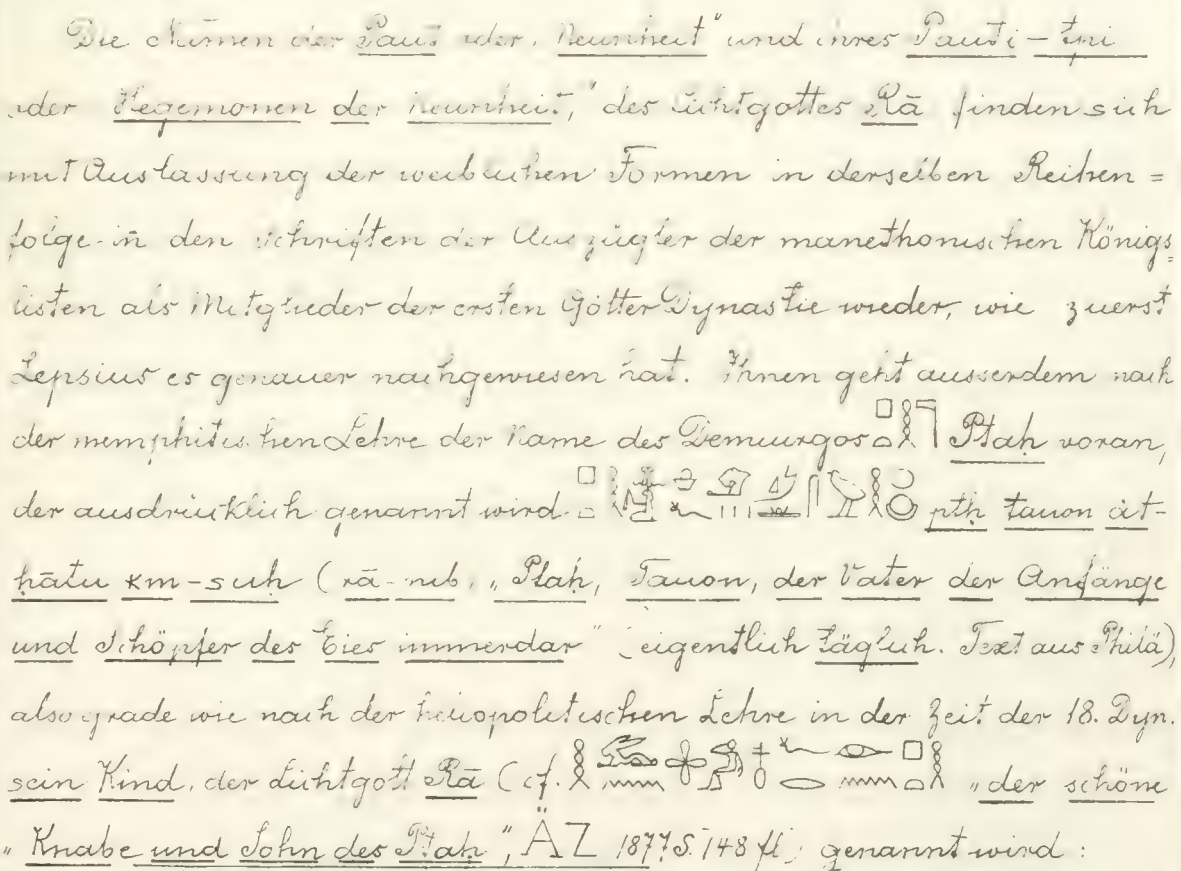 Die Namen der Paut oder „Neunheit" und ihres Pauti-tpi
oder Hegemonen der Neunheit," des Lichtgottes Rā finden sich
mit Auslassung der weiblichen Formen in derselben Reihen=
folge in den Schriften der Auszügler der manethonischen Königs=
listen als Mitglieder der ersten Götter Dynastie wieder, wie zuerst
Lepsius es genauer nachgewiesen hat. Ihnen geht ausserdem nach
der memphitischen Lehre der Name des Demiurgos Ptaḥ voran,
der ausdrücklich genannt wird ptḥ tauon āt-
ḥātu ḳm-suḥ (rā-nib, „Ptaḥ, Tauon, der Vater der Anfänge
und Schöpfer des Eies immerdar" (eigentlich täglich. Text aus Philä),
also grade wie nach der heliopolitischen Lehre in der Zeit der 18. Dyn.
sein Kind, der Lichtgott Rā (cf. „der schöne
„Knabe und Sohn des Ptaḥ", ÄZ 1877 S. 148 fl) genannt wird: